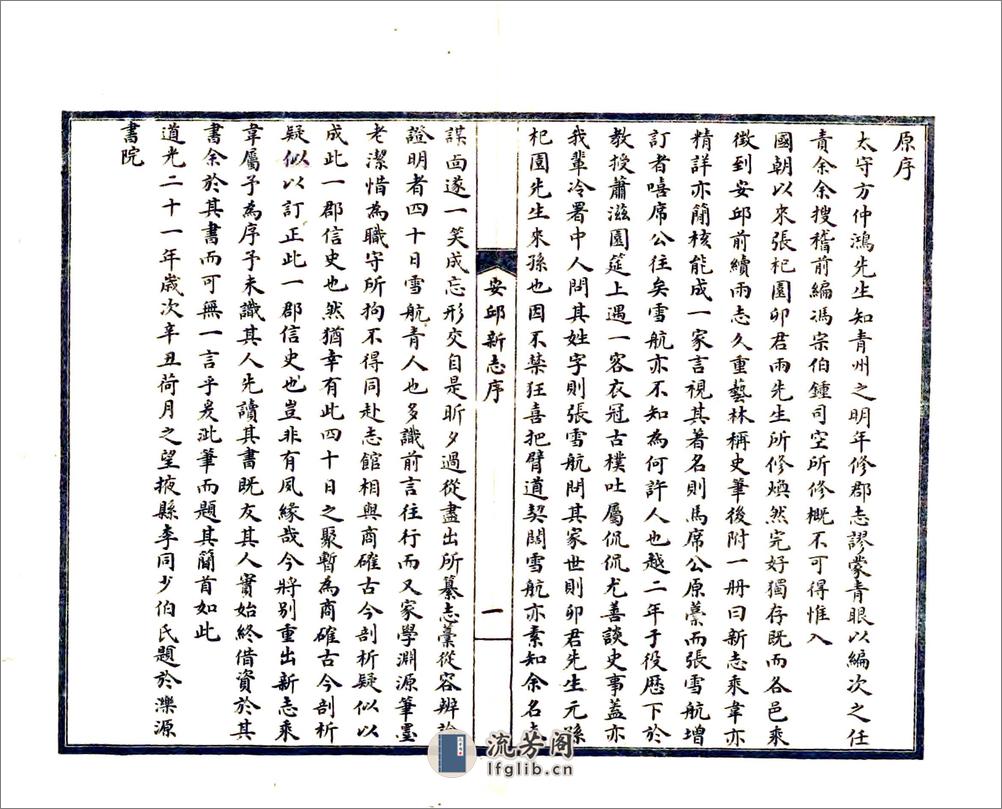 原序
太守方仲鴻先生知青州之明年修郡志謬蒙青眼以編次之任
責余余搜稽前編馮宗伯鍾司空所修概不可得惟入
國朝以來張杞園卯君兩先生所修煥然完好獨存既而各邑乘
徵到安邱前續兩志久重藝林稱史筆後附一冊曰新志乘韋亦
精詳亦簡核能成一家言視其著名則馬席公原藁而張雪航增
訂者嘻席公往矣雪航亦不知為何許人也越二年于役歷下於
教授蕭滋園筵上遇一客衣冠古樸吐屬侃侃尤善談史事蓋亦
我輩冷署中人問其姓字則張雪航問其家世則卯君先生元孫
杞園先生來孫也因不禁狂喜把臂道契闊雪航亦素知余名
安邱新志序
一
謀面遂一笑成忘形交自是昕夕過從盡出所纂志藁從容辨論
證明者四十日雪航青人也多識前言往行而又家學淵源筆墨
老潔惜為職守所拘不得同赴志館相與商確古今剖析疑似以
成此一郡信史也然猶幸有此四十日之聚暫為商確古今剖析
疑似以訂正此一郡信史也豈非有風緣哉今將別重出新志乘
韋屬予為序予未識其人先讀其書既友其人實始終借資於其
書余於其書而可無一言乎爰泚筆而題其簡首如此
道光二十一年歲次辛丑荷月之望掖縣李同少伯氏題於濼源
書院
流芳阁
lfglib.cn